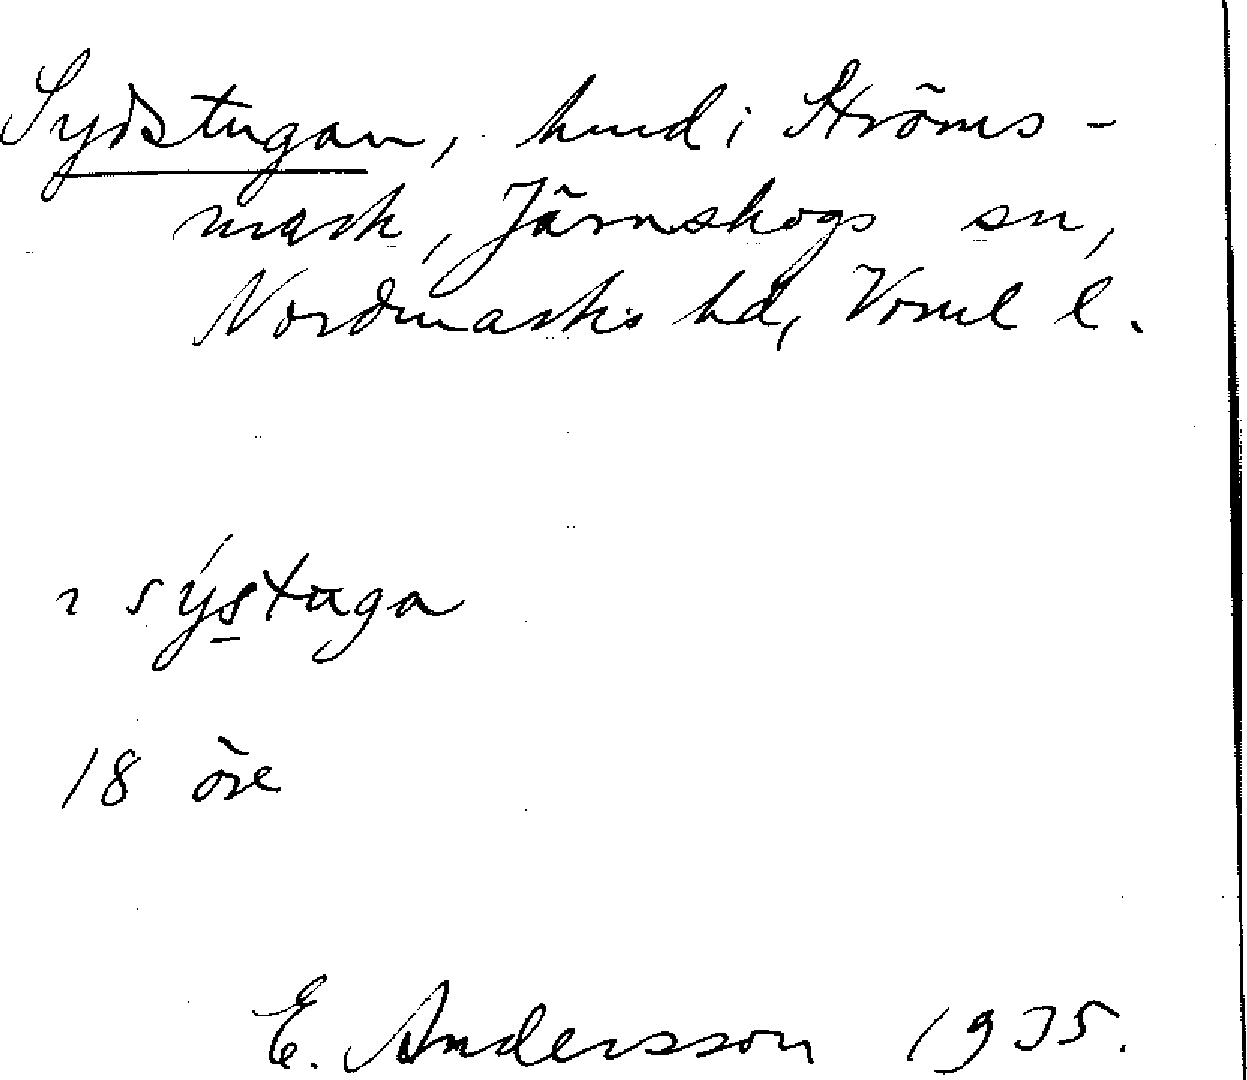 Sydstugan, hmd i Ströms-
mark, Järnskogs sn,
Nordmarks hd, Vrml l.
ı sýstuga
18 öre
E. Andersson 1935.